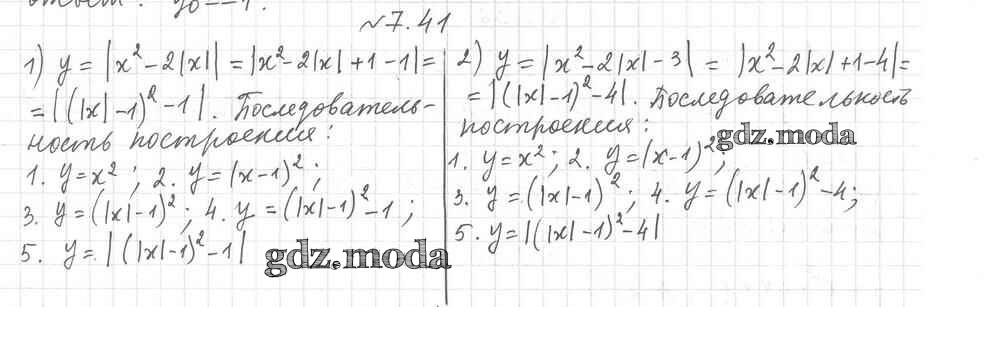 №7.41
1) y = |x² - 2|x|| = |x² - 2|x| + 1 - 1| =
= |(|x| - 1)² - 1|. Последователь-
ность построения:
1. y = x²; 2. y = (x - 1)²;
3. y = (|x| - 1)²; 4. y = (|x| - 1)² - 1;
5. y = |(|x| - 1)² - 1|
gdz.moda
2) y = |x² - 2|x| - 3| = |x² - 2|x| + 1 - 4| =
= |(|x| - 1)² - 4|. Последовательность
построения:
gdz.moda
1. y = x²; 2. y = (x - 1)²;
3. y = (|x| - 1)²; 4. y = (|x| - 1)² - 4;
5. y = |(|x| - 1)² - 4|